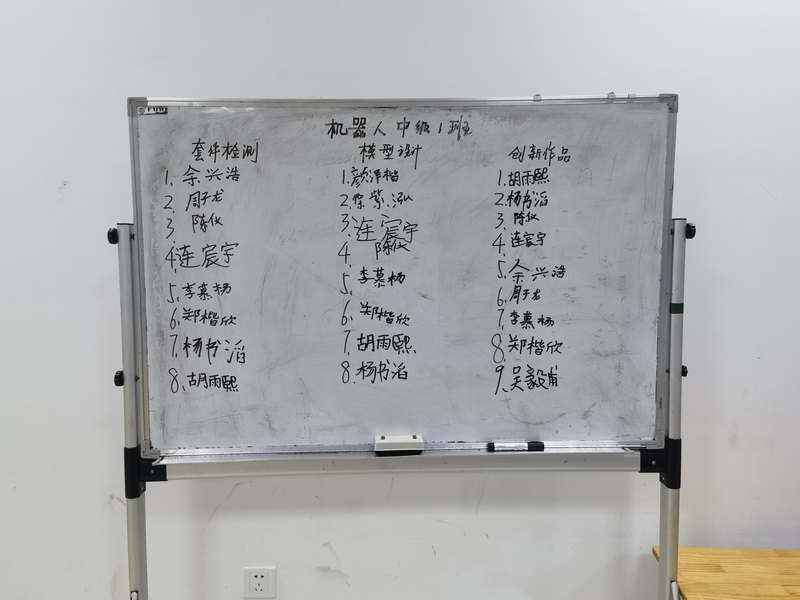 机器人中级1班
套件检测
1. 余兴浩
2. 周子龙
3. 陈仪
4. 连宸宇
5. 李慕杨
6. 郑楷欣
7. 杨书滔
8. 胡雨熙
模型设计
1. 颜泽楷
2. 紫泓
3. 连宸宇
4. 陈仪
5. 李慕杨
6. 郑楷欣
7. 胡雨熙
8. 杨书滔
创新作品
1. 胡雨熙
2. 杨书滔
3. 陈仪
4. 连宸宇
5. 余兴浩
6. 周子龙
7. 李慕杨
8. 郑楷欣
9. 吴毅甫